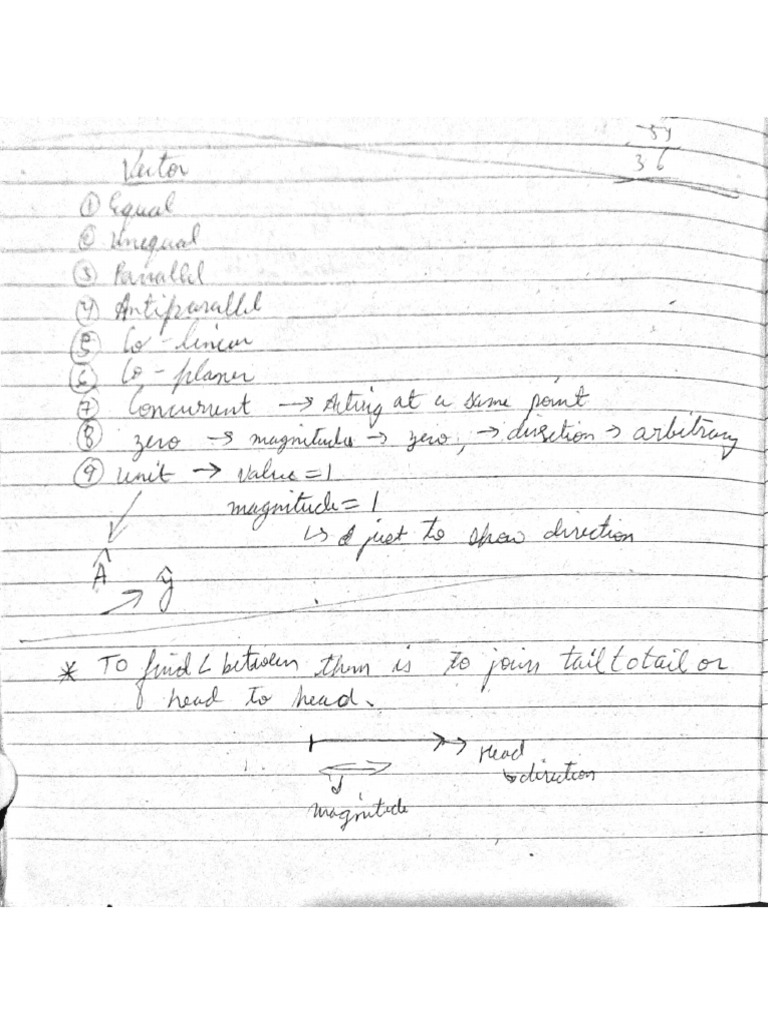 54
36
Vector
① Equal
② Unequal
③ Parallel
④ Antiparallel
⑤ Co-linear
⑥ Co-planer
⑦ Concurrent → Acting at a same point
⑧ zero → magnitude → zero, → direction → arbitrary
⑨ unit → value = 1
magnitude = 1
↳ just to show direction
Â ŷ
* To find ∠ between them is to join tail to tail or
head to head.
Head
↳ direction
magnitude